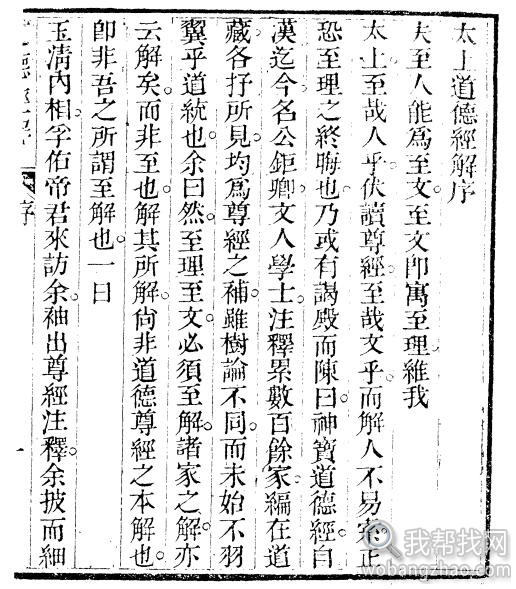 太上道德經解序
夫至人能爲至文至文卽寓至理維我
太上至哉人乎伏讀尊經至哉文乎而解人不易索正
恐至理之終晦也乃或有謁殿而陳曰神寶道德經自
漢迄今名公鉅卿文人學士注釋累數百餘家編在道
藏各抒所見均爲尊經之補雖樹論不同而未始不羽
翼乎道統也余曰然至理至文必須至解諸家之解亦
云解矣而非至也解其所解尚非道德尊經之本解也
卽非吾之所謂至解也一日
玉清內相孚佑帝君來訪余袖出尊經注釋余披而細
序
一
我帮找网
wobangzhao.com